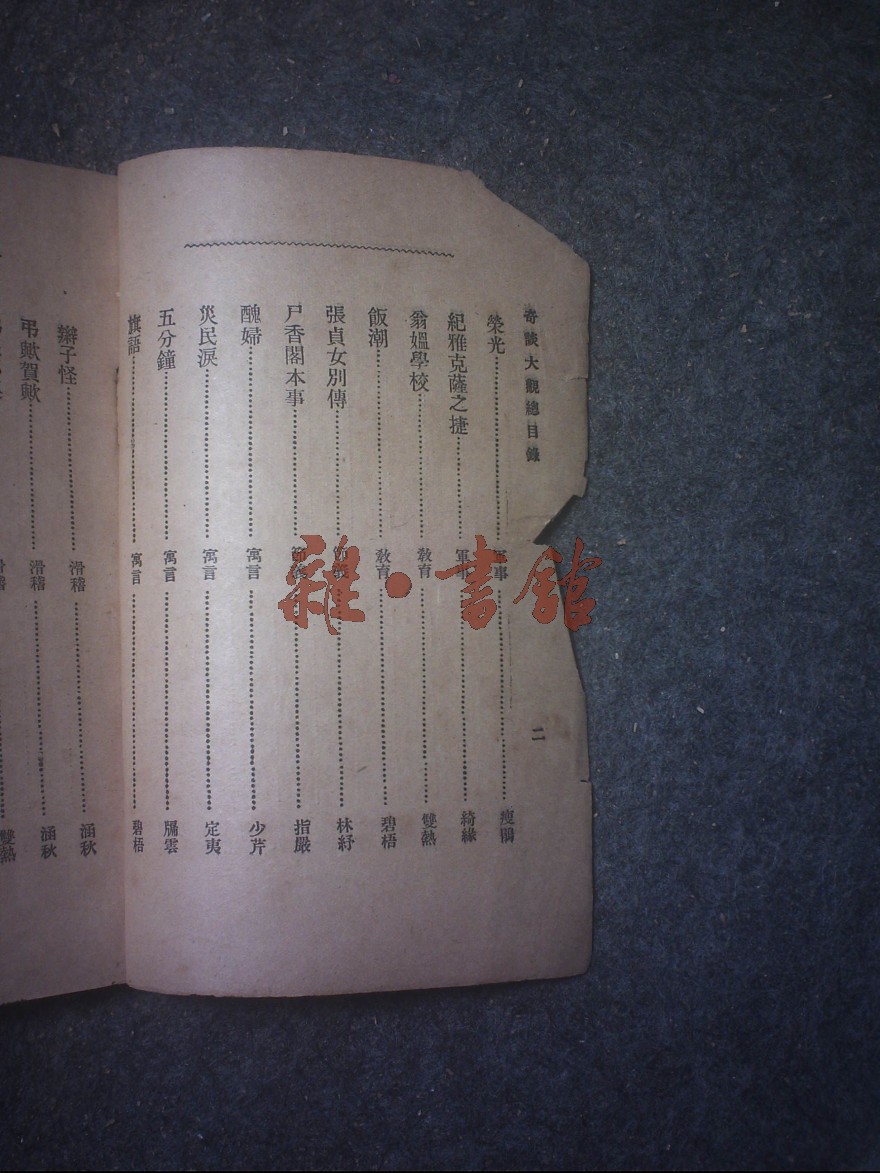 奇談大觀總目錄
二
榮光 軍事 瘦鵑
紀雅克薩之捷 軍事 綺緣
翁媼學校 教育 雙熱
飯潮 教育 碧梧
張貞女別傳 林紓
尸香閣本事 指嚴
醜婦 寓言 少芹
災民淚 寓言 定夷
五分鐘 寓言 牖雲
旗語 寓言 碧梧
辮子怪 滑稽 涵秋
弔歟賀歟 滑稽 涵秋
滑稽 雙熱
雜·書館